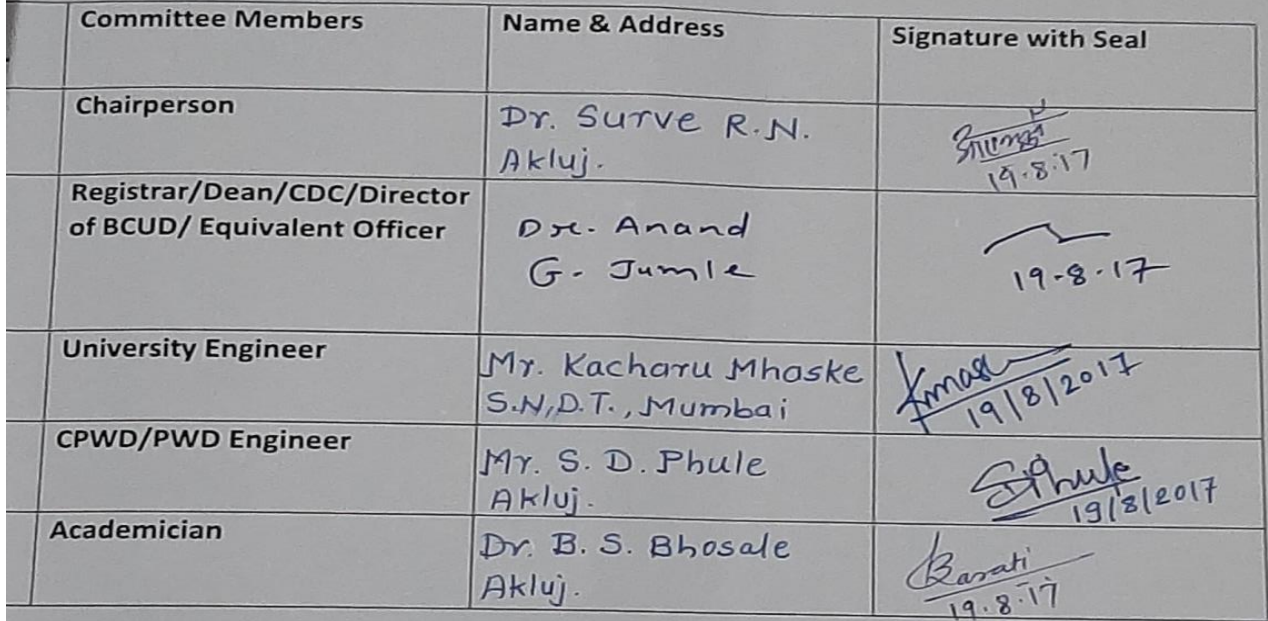 Committee Members
Name & Address
Signature with Seal
Chairperson
Dr. Surve R.N.
Akluj.
19.8.17
Registrar/Dean/CDC/Director
of BCUD/ Equivalent Officer
Dr. Anand
G. Jumle
19-8-17
University Engineer
Mr. Kacharu Mhaske
S.N,D.T., Mumbai
19/8/2017
CPWD/PWD Engineer
Mr. S. D. Phule
Akluj.
SPhule
19/8/2017
Academician
Dr. B. S. Bhosale
Akluj.
19.8.17